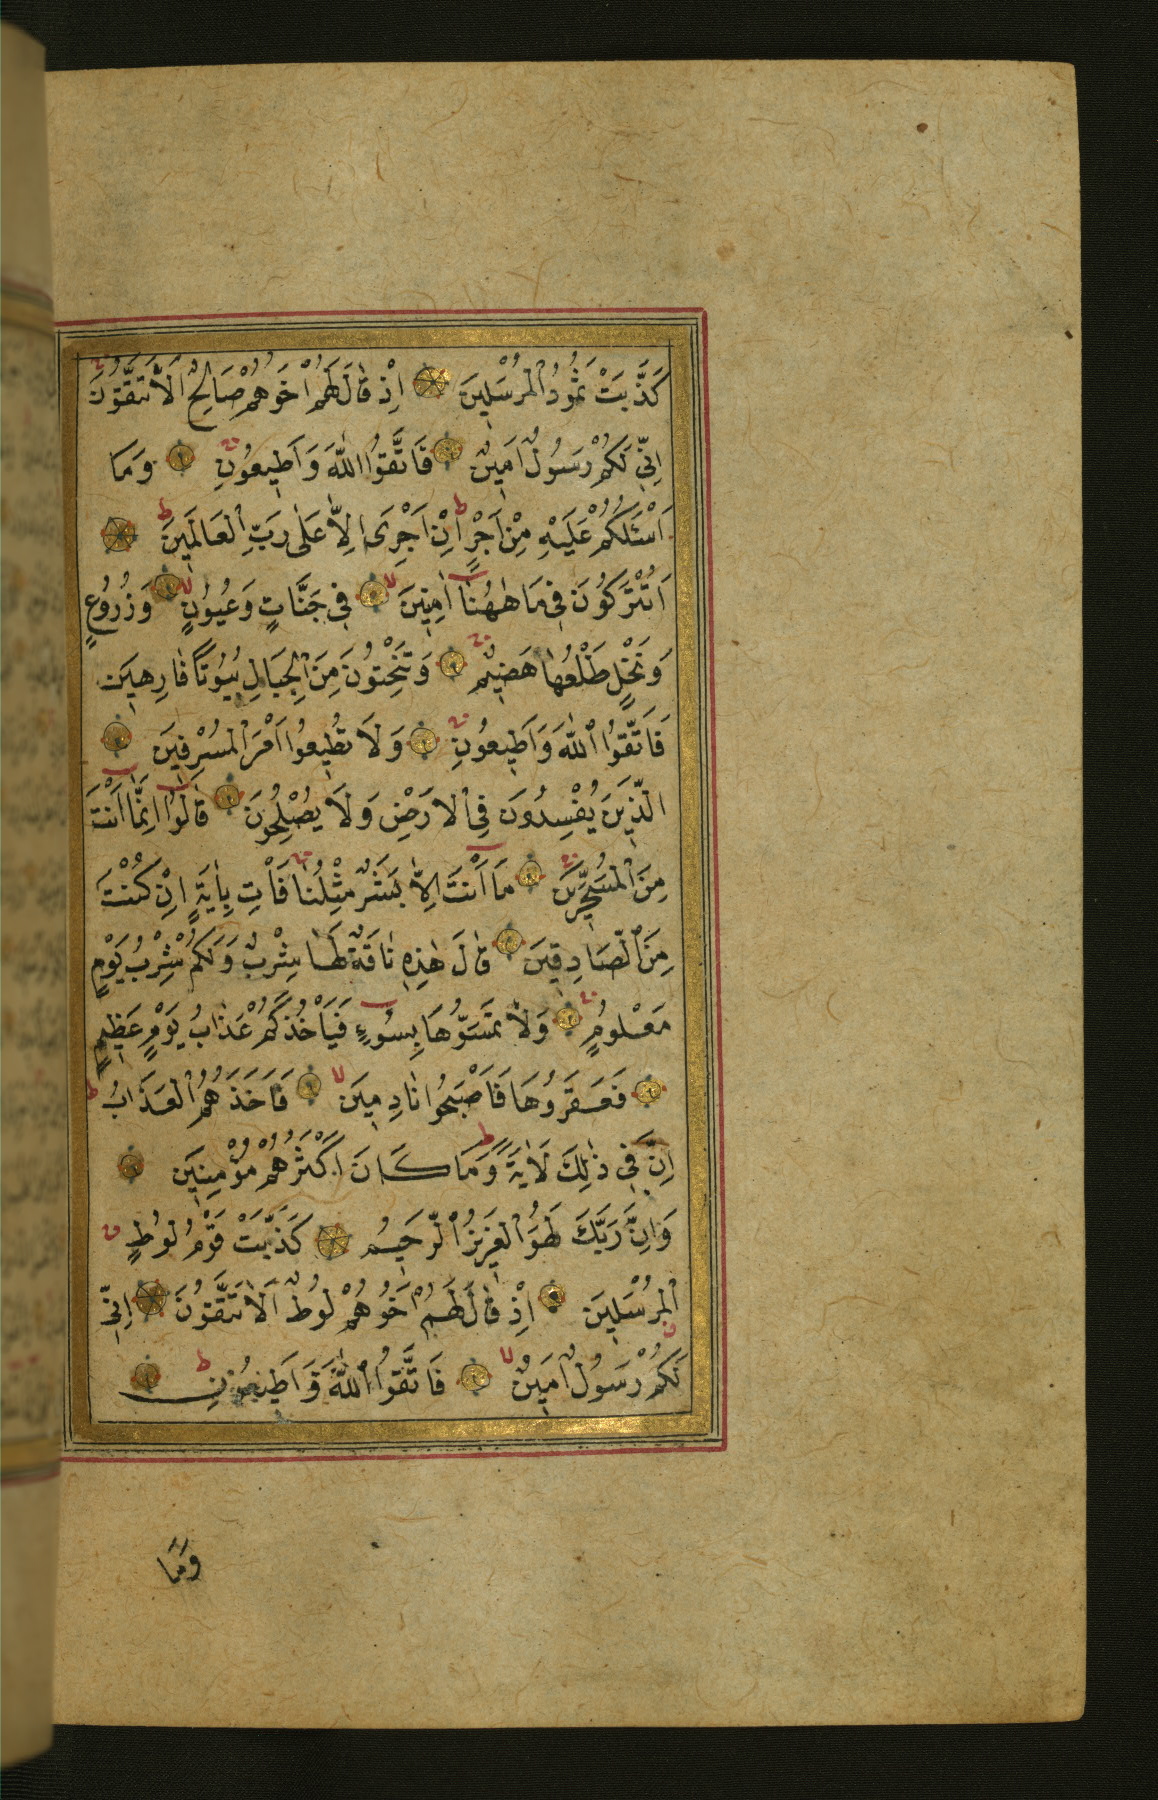 كَذَّبَتْ ثَمُودُ الْمُرْسَلِينَ اِذْ قَالَ لَهُمْ اَخُوهُمْ صَالِحٌ اَلَا تَتَّقُونَ
اِنِّي لَكُمْ رَسُولٌ اَمِينٌ فَاتَّقُوا اللّٰهَ وَاَطِيعُونِ وَمَا
اَسْئَلُكُمْ عَلَيْهِ مِنْ اَجْرٍ اِنْ اَجْرِيَ اِلَّا عَلٰى رَبِّ الْعَالَمِينَ
اَتُتْرَكُونَ فِي مَا هٰهُنَا اٰمِنِينَ فِي جَنَّاتٍ وَعُيُونٍ وَزُرُوعٍ
وَنَخْلٍ طَلْعُهَا هَضِيمٌ وَتَنْحِتُونَ مِنَ الْجِبَالِ بُيُوتًا فَارِهِينَ
فَاتَّقُوا اللّٰهَ وَاَطِيعُونِ وَلَا تُطِيعُوا اَمْرَ الْمُسْرِفِينَ
الَّذِينَ يُفْسِدُونَ فِي الْاَرْضِ وَلَا يُصْلِحُونَ قَالُوا اِنَّمَا اَنْتَ
مِنَ الْمُسَحَّرِينَ مَا اَنْتَ اِلَّا بَشَرٌ مِثْلُنَا فَأْتِ بِاٰيَةٍ اِنْ كُنْتَ
مِنَ الصَّادِقِينَ قَالَ هٰذِهِ نَاقَةٌ لَهَا شِرْبٌ وَلَكُمْ شِرْبُ يَوْمٍ
مَعْلُومٍ وَلَا تَمَسُّوهَا بِسُوءٍ فَيَأْخُذَكُمْ عَذَابُ يَوْمٍ عَظِيمٍ
فَعَقَرُوهَا فَاَصْبَحُوا نَادِمِينَ فَاَخَذَهُمُ الْعَذَابُ
اِنَّ فِي ذٰلِكَ لَاٰيَةً وَمَا كَانَ اَكْثَرُهُمْ مُؤْمِنِينَ
وَاِنَّ رَبَّكَ لَهُوَ الْعَزِيزُ الرَّحِيمُ كَذَّبَتْ قَوْمُ لُوطٍ
الْمُرْسَلِينَ اِذْ قَالَ لَهُمْ اَخُوهُمْ لُوطٌ اَلَا تَتَّقُونَ اِنِّي
لَكُمْ رَسُولٌ اَمِينٌ فَاتَّقُوا اللّٰهَ وَاَطِيعُونِ
وَمَا